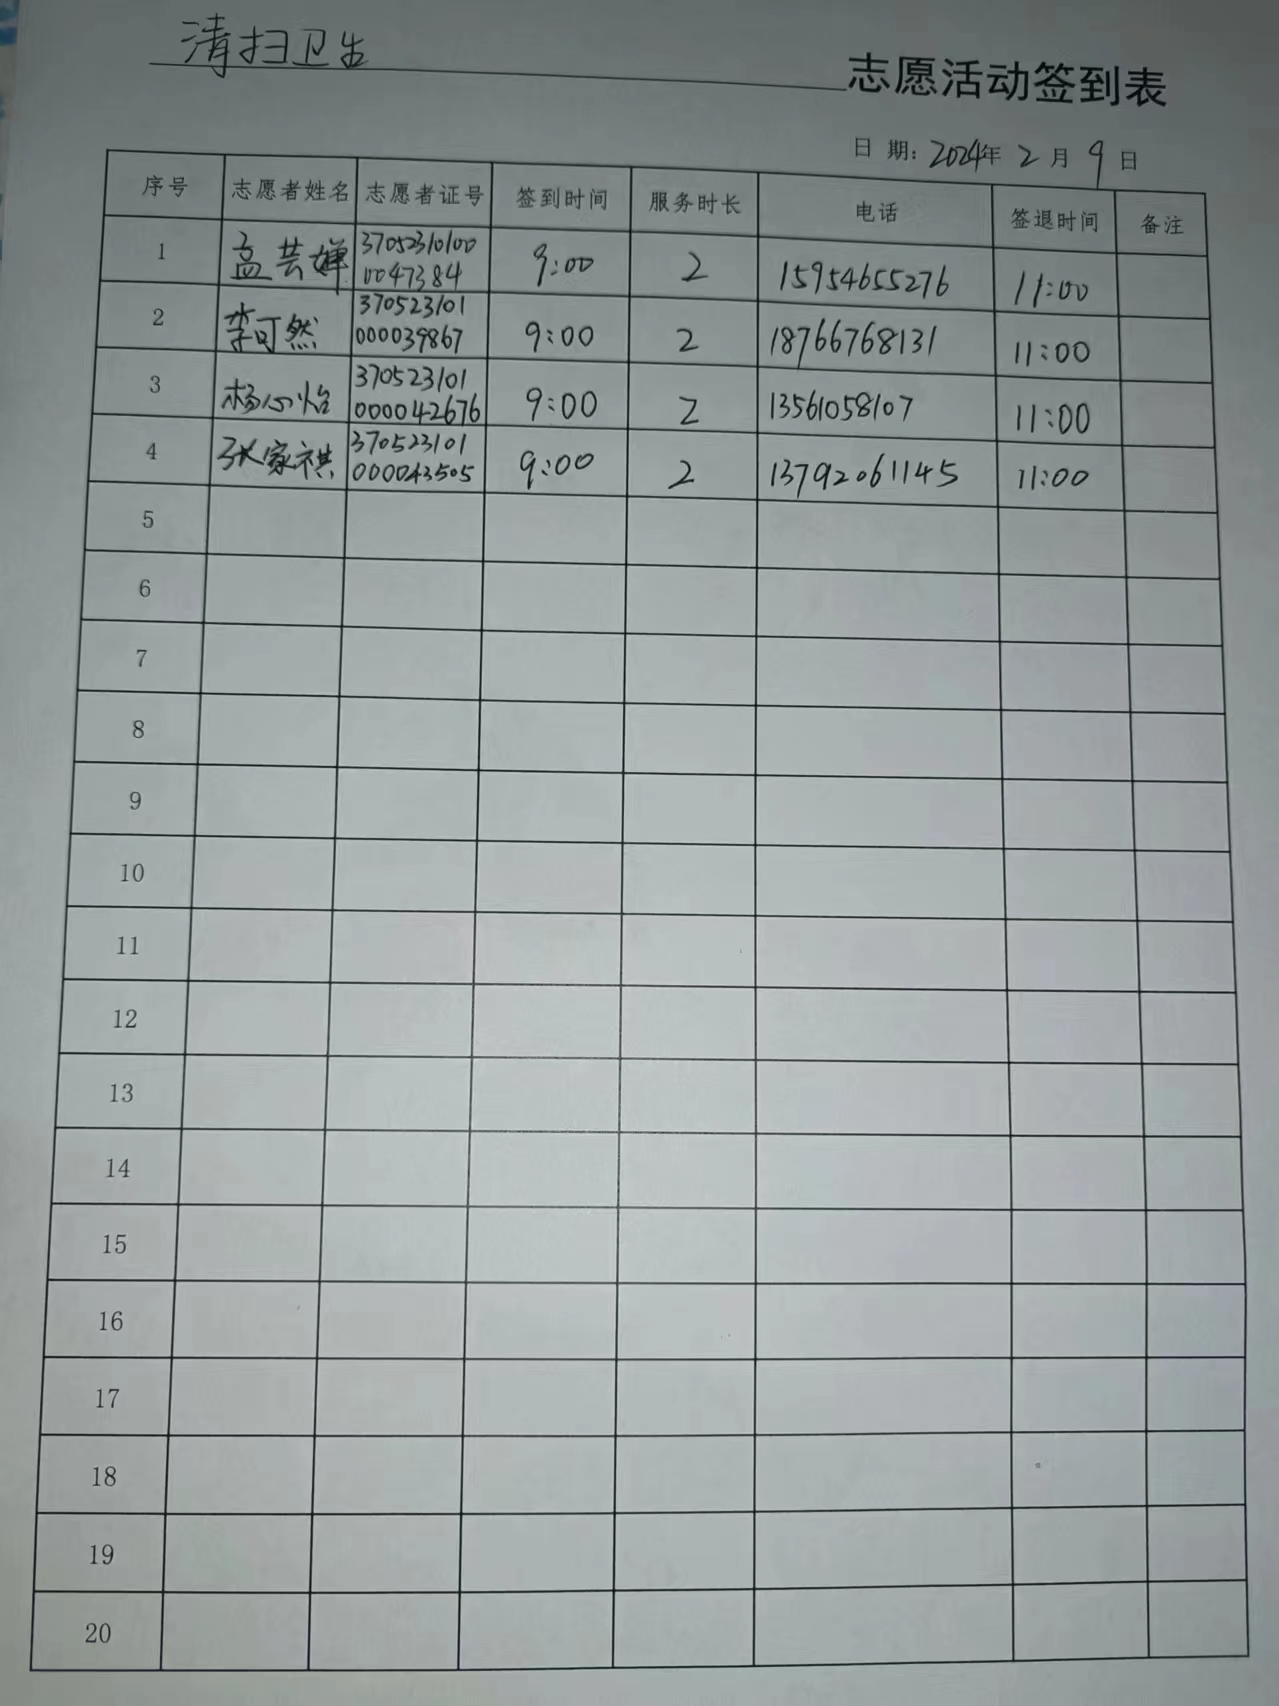 清扫卫生 志愿活动签到表
日 期: 2024年 2 月 9 日
序号 志愿者姓名 志愿者证号 签到时间 服务时长 电话 签退时间 备注
1 孟芸婵 3705230100 0047384 9:00 2 15954655276 11:00
2 李可然 370523101 000039867 9:00 2 18766768131 11:00
3 杨心怡 370523101 000042676 9:00 2 13561058107 11:00
4 张家祺 370523101 000043505 9:00 2 13792061145 11:00
5
6
7
8
9
10
11
12
13
14
15
16
17
18
19
20